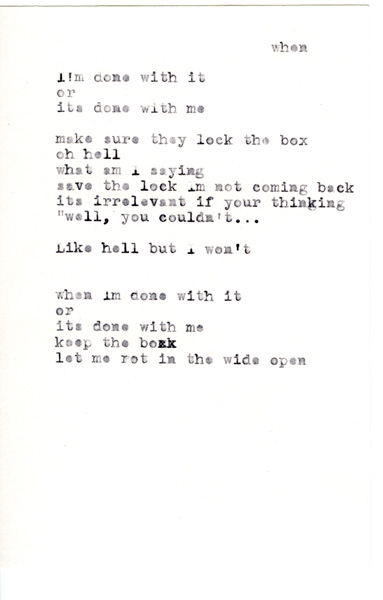 when
I'm done with it
or
its done with me
make sure they lock the box
oh hell
what am I saying
save the lock im not coming back
its irrelevant if your thinking
"well, you couldn't...
Like hell but I won't
when im done with it
or
its done with me
keep the
let me rot in the wide open